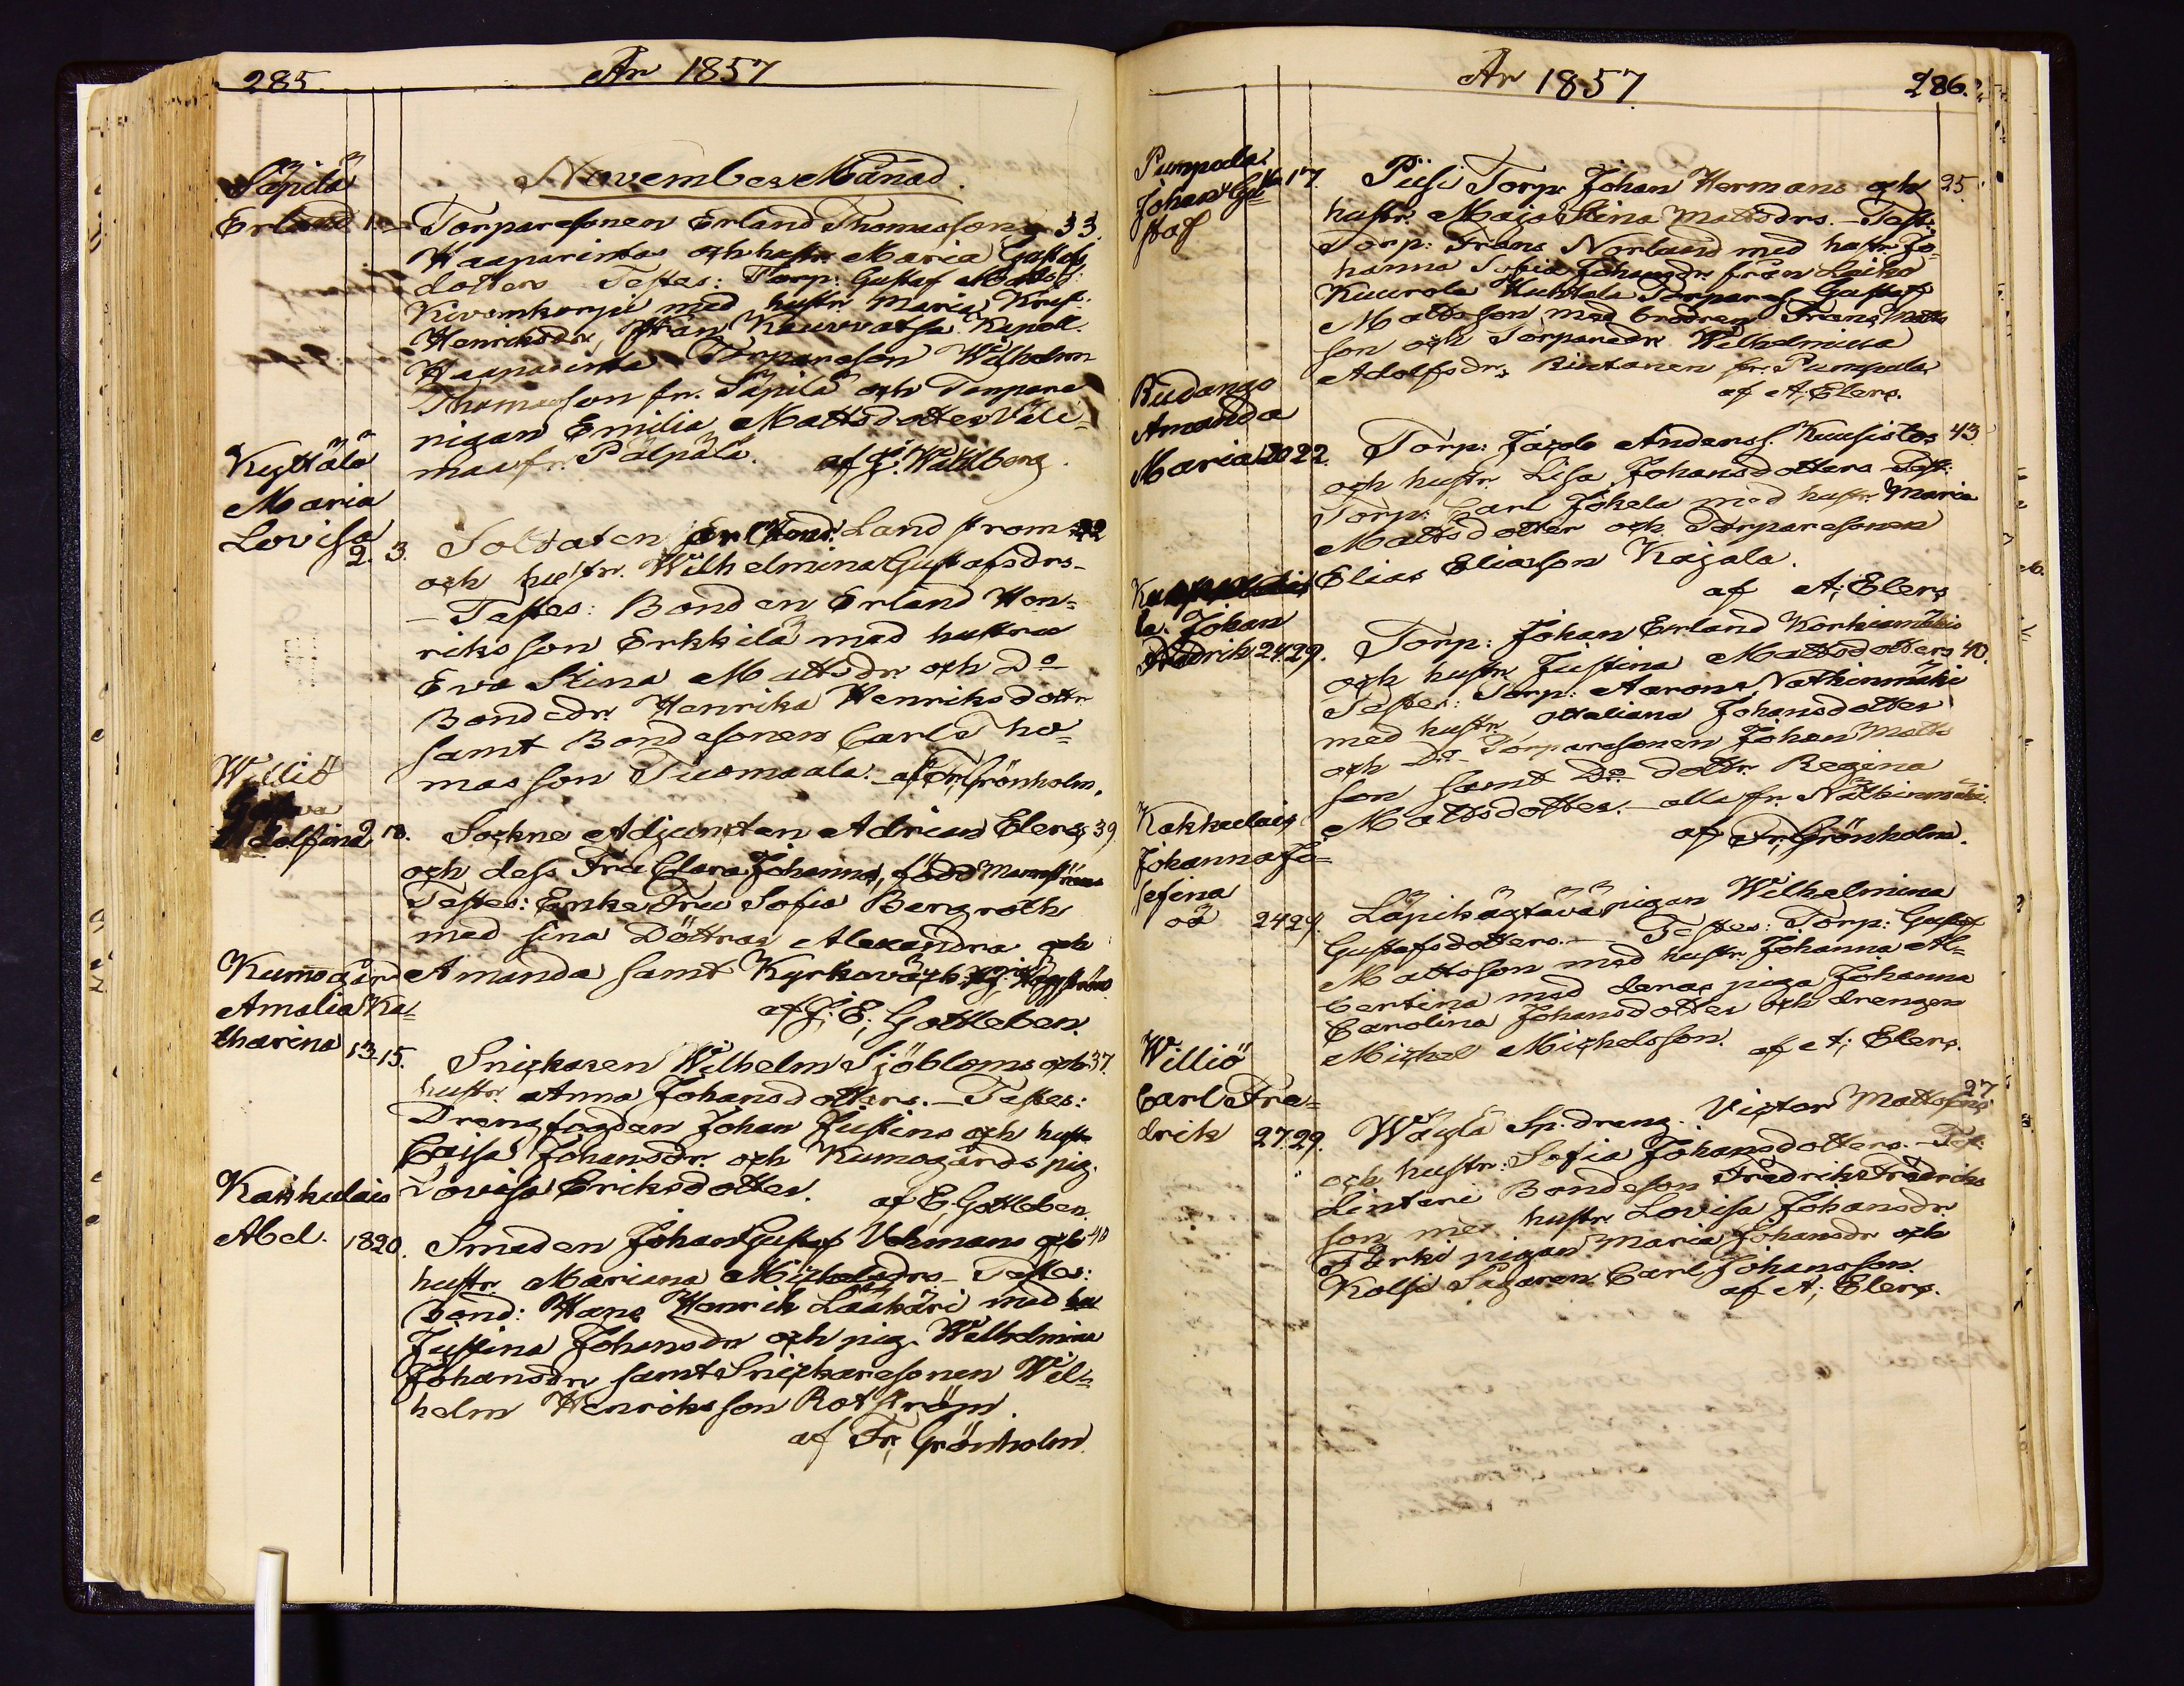 285.
År 1857
November Månad.
Säpilä
Erland 1.
Torparesonen Erland Thomasson 33.
Haaparintas och hustr. Maria Gustafs
dotters Testes: Torp: Gustaf Mattss.
Kivenkorpi med hustr. Maria Krist.
Henriksdr, från Kauvvatsa Kapell.
Haaparinta Torpareson Wilhelm
Thomasson fr. Säpilä och Torpare
pigan Emilia Mattsdotter Väli-
maa fr. Pälpälä. af J. Wahlberg.
Kyttälä
Maria
Lovisa
2. 3.
Soltaten Landstrom 22
och hustr. Wilhelmina Gustafsdrs.
– Testes: Bonden Erland Hen-
riksson Erkkilä med hustru
Eva Stina Mattsdr. och Do
Bondedr. Henrika Henriksdottr
samt Bondesonen Carl Tho-
masson Tuomaala. af Fr. Grönholm.
Williö
Adolfina 9 10.
Sockne Adjuncten Adrian Elers 39
och dess Fru Clara Johanna, född
Testes: Enke Fru Sofia Bergroth
med sina Döttrar Alexandra och
Amanda samt Kyrkovärd
af J. E. Gottleben.
Kumogård
Amalia Ka-
tharina 13. 15.
Snickaren Wilhelm Sjöbloms och 37.
hustr. Anna Johansdotters. – Testes:
Drengfogden Johan Justins och hustr
Caisa Johansdr. och Kumogårds pig.
Lovisa Eriksdotter. af E. Gottleben.
Kakkulais
Abel. 18 20.
Smeden Johan Gustaf Vehmans och 40
hustr. Mariana Michelsdrs. – Testes:
Bond: Hans Henrik Lääkäri med hu
Justina Johansdr och pig. Wilhelmina
Johansdr samt Snickaresonen Wil-
helm Henriksson Rotström.
af Fr. Grönholm.
År 1857.
286.
Pumpala
Johan Gu-
staf
17.
Piisi Torp. Johan Hermans och 25.
hustr. Maja Stina Mattsdrs. – Test:
Torp: Frans Norlund med hustr. Jo-
hanna Sofia Johansdr. från Laiko
Kuurola Huhtala Torpares Gustaf
Mattsson med brodren Frans Matts
son och Torparedr. Wilhelmina
Adolfsdr. Rintanen fr. Pumpala
af A. Elers.
Amanda
Maria 20 22.
Torp: Jacob Anderss. Kuusistos 43
och hustr. Lisa Johansdotters Test:
Torp: Carl Jokela med hustr. Maria
Mattsdotter och Torparesonen
Elias Eliasson Kajala.
af A. Elers
la. Johan
Fredrik 24 29.
Torp: Johan Erland Korkiamäkis
och hustr. Justina Mattsdotters 40.
Testes: Torp: Aarons Natkinmäki
med hustr. Ottaliana Johansdotter
och Do Torparesonen Johan Matts
son samt Do dottr. Regina
Mattsdotter. – alla fr. Natkinmäki.
af Fr. Grönholm.
Kakkulais
Johanna Jo-
sefina
oä 24 29.
Läpikäytävä pigan Wilhelmina
Gustafsdotters. – Testes: Torp: Gustaf
Mattsson med hustr. Johanna Al-
bertina med deras piga Johanna
Carolina Johansdotter och drengen
Michel Michelsson. af A. Elers.
Williö
Carl Fre-
drik 27. 29.
27
Wäylä Sp. dreng. Victor Mattssons
och hustr. Sofia Johansdotters. – Test:
Linteri Bondeson Fredrik Fredriks
son med hustr. Lovisa Johansdr
Särki pigan Maria Johansdr och
Kolsi Sagaren Carl Johansson.
af A. Elers.